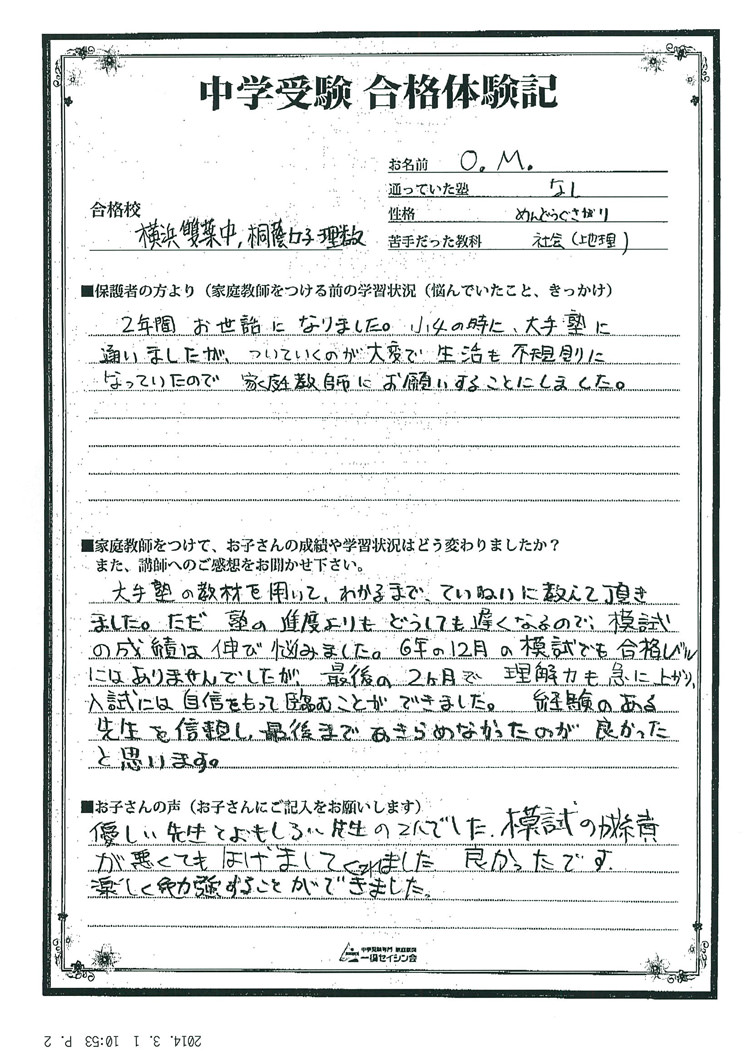 中学受験 合格体験記
お名前 O.M.
通っていた塾 なし
合格校
性格 めんどうくさがり
横浜雙葉中, 桐蔭女子理数
苦手だった教科 社会(地理)
■保護者の方より（家庭教師をつける前の学習状況（悩んでいたこと、きっかけ）
2年間 お世話に なりました。小4の時に、大手塾に
通いましたが、ついていくのが大変で 生活も 不規則に
なっていたので 家庭教師に お願いすることにしました。
■家庭教師をつけて、お子さんの成績や学習状況はどう変わりましたか？
また、講師へのご感想をお聞かせ下さい。
大手塾の教材を用いて、わかるまで、ていねいに教えて頂き
ました。ただ 塾の進度よりも どうしても 遅くなるので、模試
の成績は 伸び悩みました。6年の12月の模試でも合格レベル
にはありませんでしたが、最後の2ヶ月で 理解力も急に上がり、
入試には自信をもって臨むことができました。 経験のある
先生を信頼し、最後まで あきらめなかったのが 良かった
と思います。
■お子さんの声（お子さんにご記入をお願いします）
優しい先生とおもしろい先生の2人でした。模試の成績
が悪くても はげましてくれました 良かったです.
楽しく勉強することができました。
中学受験専門 家庭教師
一橋セイシン会
2014. 3. 1 10:53 P. 2